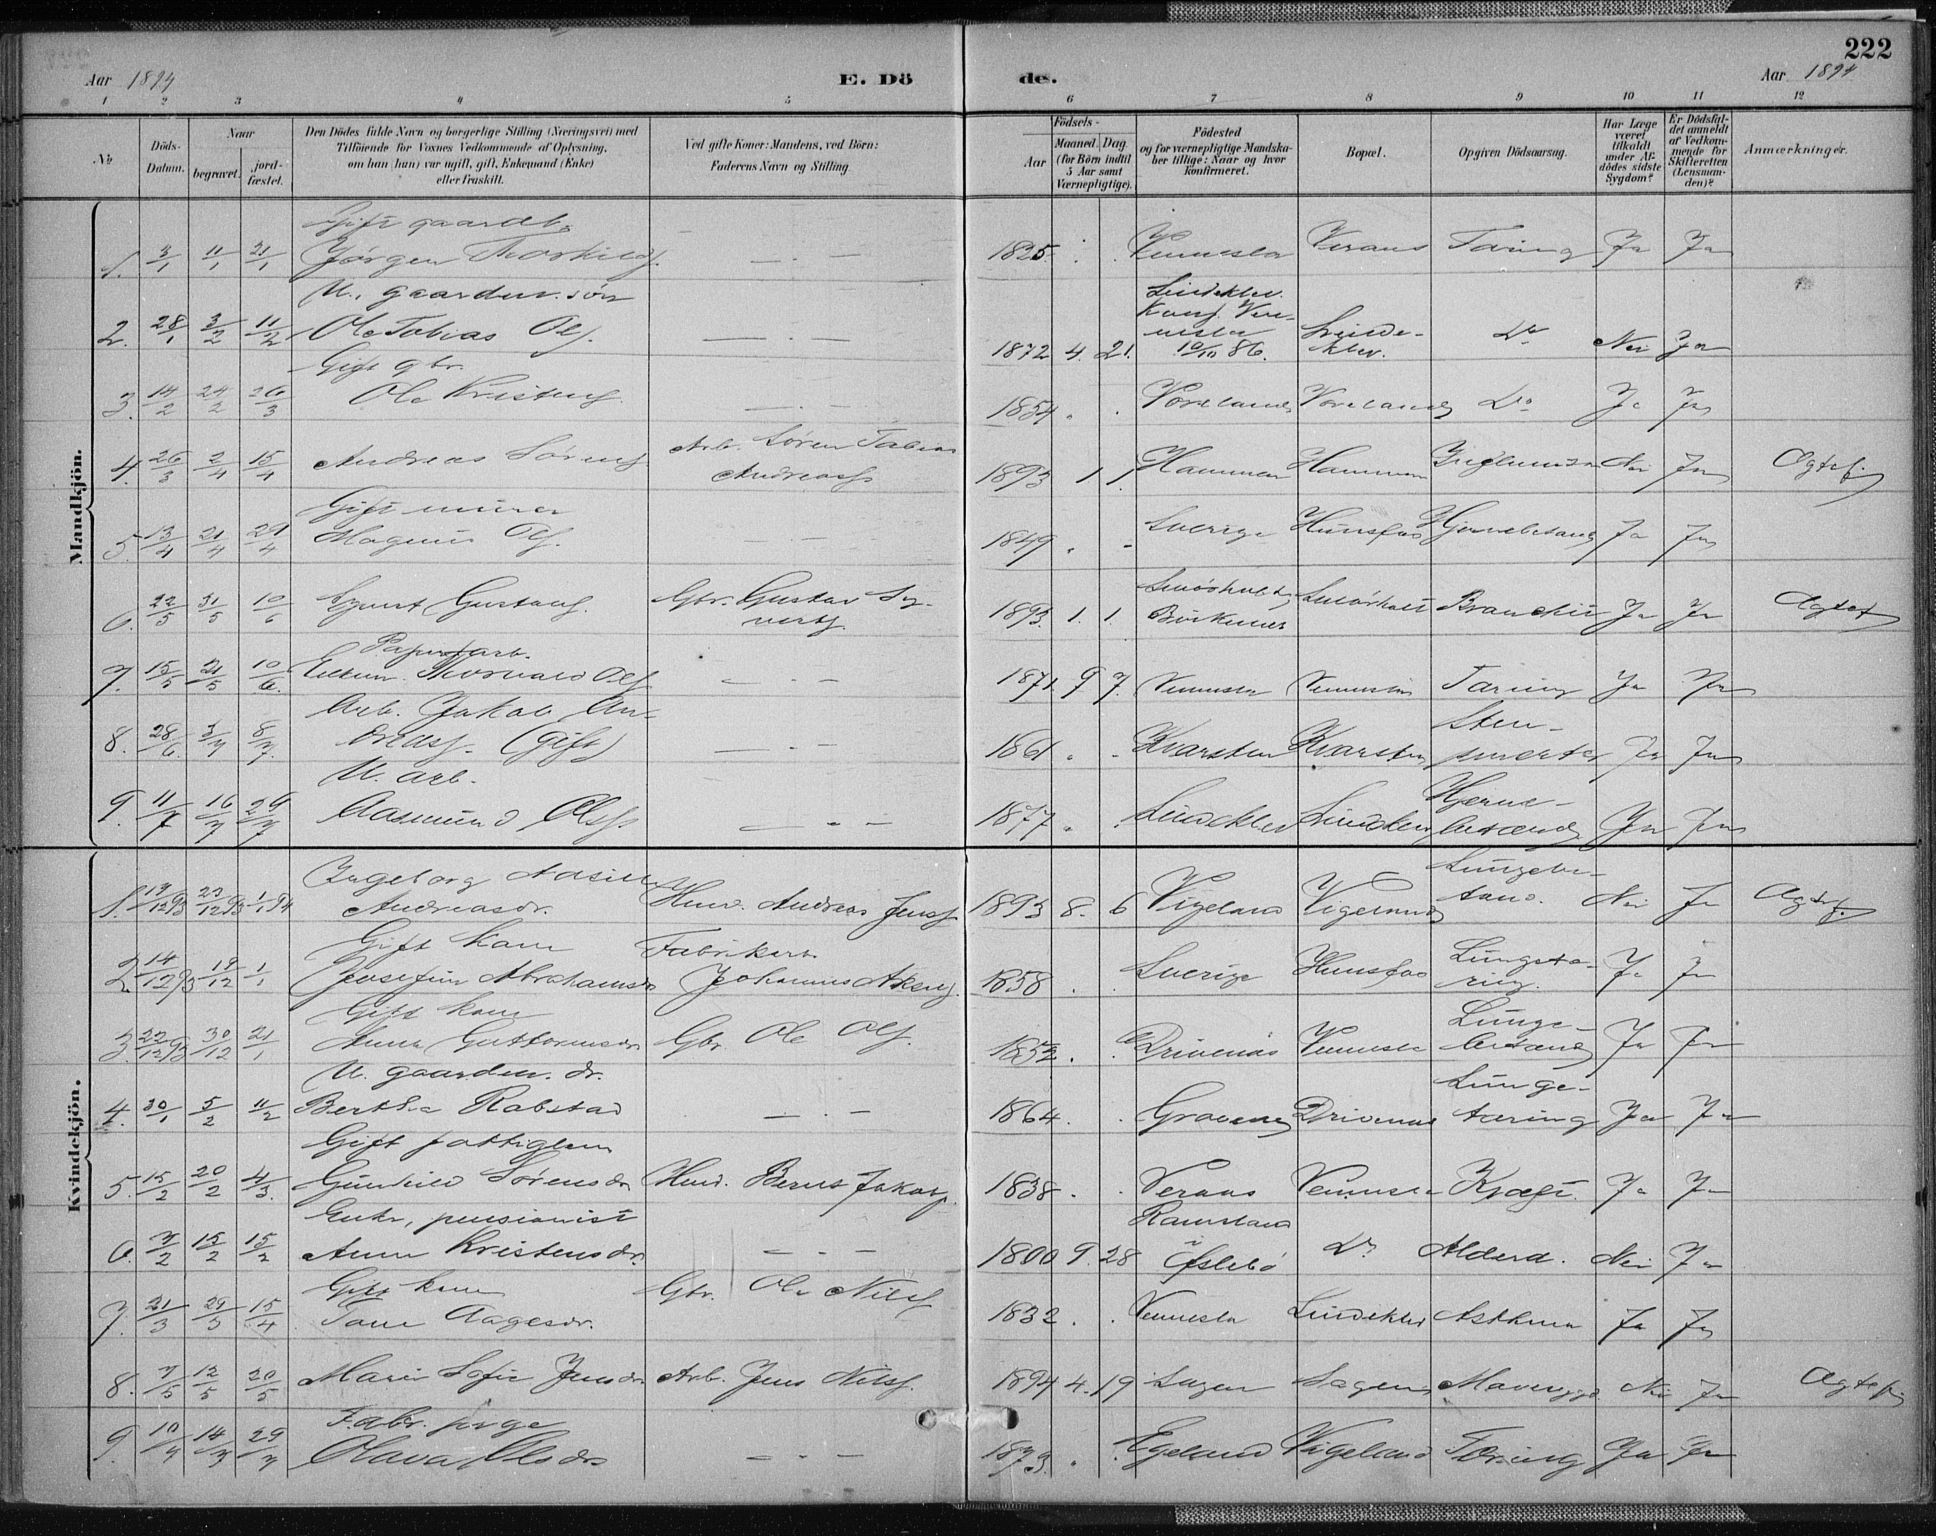 222
Aar 1894 E. Dö de. Aar 1894
1 2 3 4 5 6 7 8 9 10 11 12
No
Döds-Datum.
Naar
begravet.
jord-fæstet.
Den Dödes fulde Navn og borgerlige Stilling (Næringsvei) med
Tilföiende for Voxnes Vedkommende af Oplysning,
om han (hun) var ugift, gift, Enkemand (Enke)
eller fraskilt.
Ved gifte Koner: Mandens, ved Börn:
Faderens Navn og Stilling.
Födsels-
Aar
Maaned. Dag
(for Börn indtil
5 Aar samt
Værnepligtige).
Födested
og for værnepligtige Mandska-
ber tillige: Naar og hvor
konfirmeret.
Bopæl.
Opgiven Dödsaarsag.
Har Læge
været
tilkaldt
under Af-
dödes sidste
Sygdom?
Er Dödsfal-
det anmeldt
af Vedkom-
mende for
Skifteretten
(Lensman-
den)?
Anmærkninger.
Mandkjön.
Gift gaardb.
1. 3/1 11/1 21/1 Jørgen Thorkilds. — . — 1825 Vennesla Veraas Tæring Ja Ja
U. gaardm. søn
2. 28/1 3/2 11/2 Ole Tobias Ols. — . — 1872 4. 21. Lindeklev. Konf. Ven-
nesla
10/10 86. Linde-
klev. Do Nei Ja
Gift gbr.
3. 14/2 24/2 26/3 Ole Kristens. — . — 1854 Voreland Voreland Do Ja Ja
4. 26/3 2/4 15/4 Andreas Sørens. Arb. Søren Tobias
Andreass. 1893 1 1. Hammen Hammen Influensa Nei Ja Ægtef.
Gift murer
5. 13/4 21/4 29/4 Magnus Ols. — . — 1849 Sverige Hunsfos Hjernebetænd. Ja Ja
6. 22/5 31/5 10/6 Syvert Gustavs. Gbr. Gustav Sy-
verts. 1893. 1. 1. Smörholt,
Birkenes Smörholt Bronchit Ja Ja Ægtef.
Papirfarb.
7. 15/5 21/5 10/6. Thorvald Ols. — . — 1871. 9 7. Vennesla Vennesla Tæring Ja Ja
Arb. Jakob An-
8. 28/6. 3/7 8/7. dreass. (Gift) — . — 1861 Kvarsten Kvarsten Sten-
smerter Ja Ja
U. arb.
9. 11/7 16/7 29/7 Aasmund Olss. — . — 1877 Lindeklev Lindeklev Hjerne-
betænd. Ja Ja
Kvindekjön.
Ingeborg
1. 19/12 93 23/12 93 1/1 94 Andreasdr. Husm. Andreas Jenss. 1893 8. 6 Vigeland Vigeland Lungebe-
tænd. Nei Ja Ægtef.
Gift kone
2. 14/12 93 19/12 1/1 Josefine Abrahamsdr. Fabrikarb.
Johannes 1858 Sverige Hunsfos Lungetæ-
ring. Ja Ja
Gift kone
3. 22/12 93 30/12 21/1 Anna Guttormsdr. Gbr. Ole Ols. 1852. Drivenäs Vennesla Lunge-
betænd. Ja Ja
U. gaardm. dr.
4. 30/1 5/2 11/2 Bertha Rabstad — . — 1864. Drivenes Lunge-
tæring Ja Ja
Gift fattiglem
5. 15/2 20/2 4/3. Gunhild Sørensdr. Husm. Bernt Jakobs. 1838. Veraas Vennesla Kræft Ja Ja
Enke, pensionist
6. 7/2 15/2 15/2 Anne Kristensdr. — . — 1800 9. 28 Ramsland
i Øslebö Do Alderd. Nei Ja
Gift kone
7. 21/3 29/3 15/4 Tone Aagesdr. Gbr. Ole Nilss. 1832. Vennesla Lindeklev Asthma Ja Ja
8. 7/5 12/5 20/5 Marie Sofie Jensdr. Arb. Jens Nilss. 1894 4. 19 Sagen Sagen Mavesyge Nei Ja Ægtef.
Fabr. pige
9. 10/7 14/7 29/7 Olava Olsdr. — . — 1873. Egeland Vigeland Tæring Ja Ja